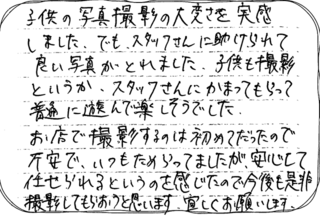 子供の写真撮影の大変さを実感
しました。でも、スタッフさんに助けられて
良い写真がとれました。子供も撮影
というか、スタッフさんにかまってもらって
普通に遊んで楽しそうでした。
お店で撮影するのは初めてだったので
不安で、いつもためらってましたが安心して
任せられるというのを感じたので今後も是非
撮影してもらおうと思います。宜しくお願いします。